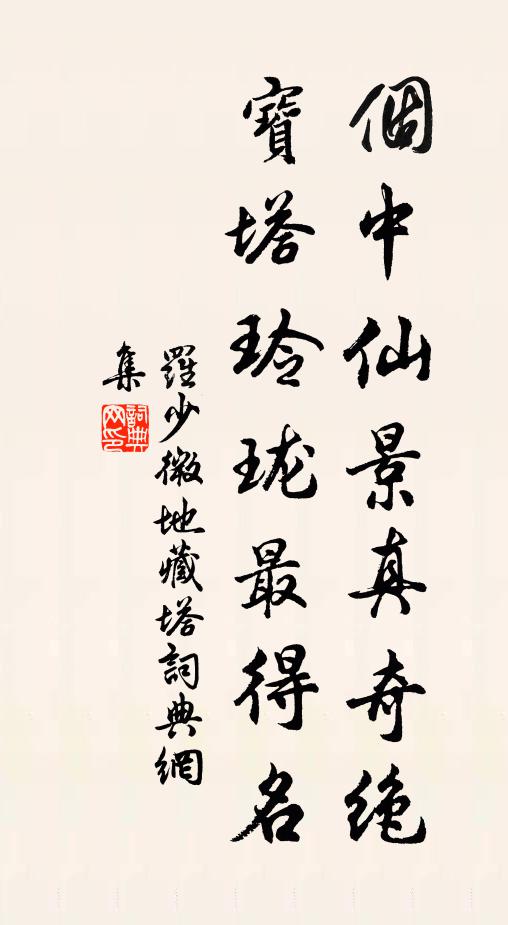 個中仙景真奇绝
寶塔玲珑最得名
羅少微地藏塔詞典網
集
詞典
网印